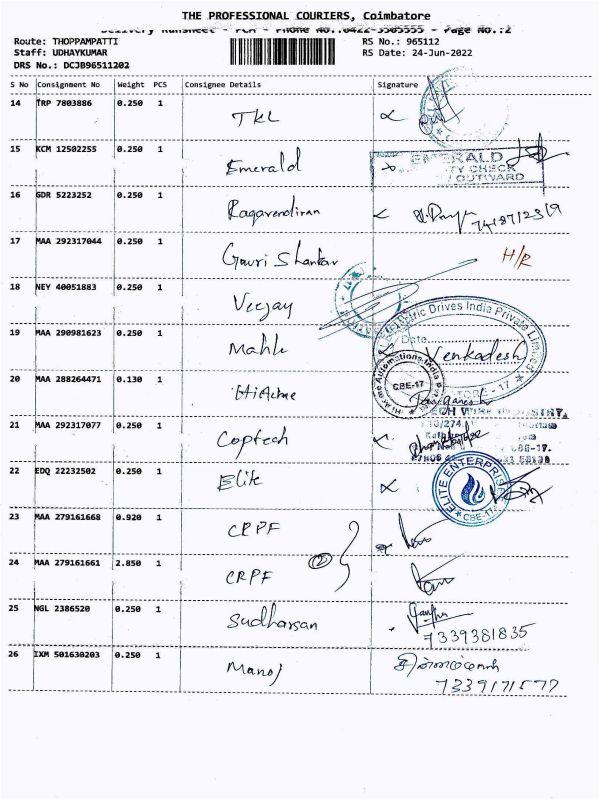 THE PROFESSIONAL COURIERS, Coimbatore
Delivery Runsheet - PCH - Phone No.:0422-3505555 - Page No.:2
Route: THOPPAMPATTI RS No.: 965112
Staff: UDHAYKUMAR RS Date: 24-Jun-2022
DRS No.: DCJB96511202
S No Consignment No Weight PCS Consignee Details Signature
14 TRP 7803886 0.250 1 TKL
15 KCM 12502255 0.250 1 Emerald
EMERALD
TY CHECK
OUTWARD
16 GDR 5223252 0.250 1 Ragavendiran
17 MAA 292317044 0.250 1 Gowri Shankar H/R
18 NEY 40051883 0.250 1 Veejay
19 MAA 290981623 0.250 1 Mahle
Electric Drives India Private Limited
Date
Venkadesh
STORE - 17
20 MAA 288264471 0.130 1 HiAcme
Hi-Acme Automations India
CBE-17
21 MAA 292317077 0.250 1 Coptech
CBE-17.
22 EDQ 22232502 0.250 1 Elite
ELITE ENTERPRISE
CBE-17
23 MAA 279161668 0.920 1 CRPF
24 MAA 279161661 2.850 1 CRPF
2
25 NGL 2386520 0.250 1 Sudharsan
7339381835
26 IXM 501630203 0.250 1 Manoj
7339171577